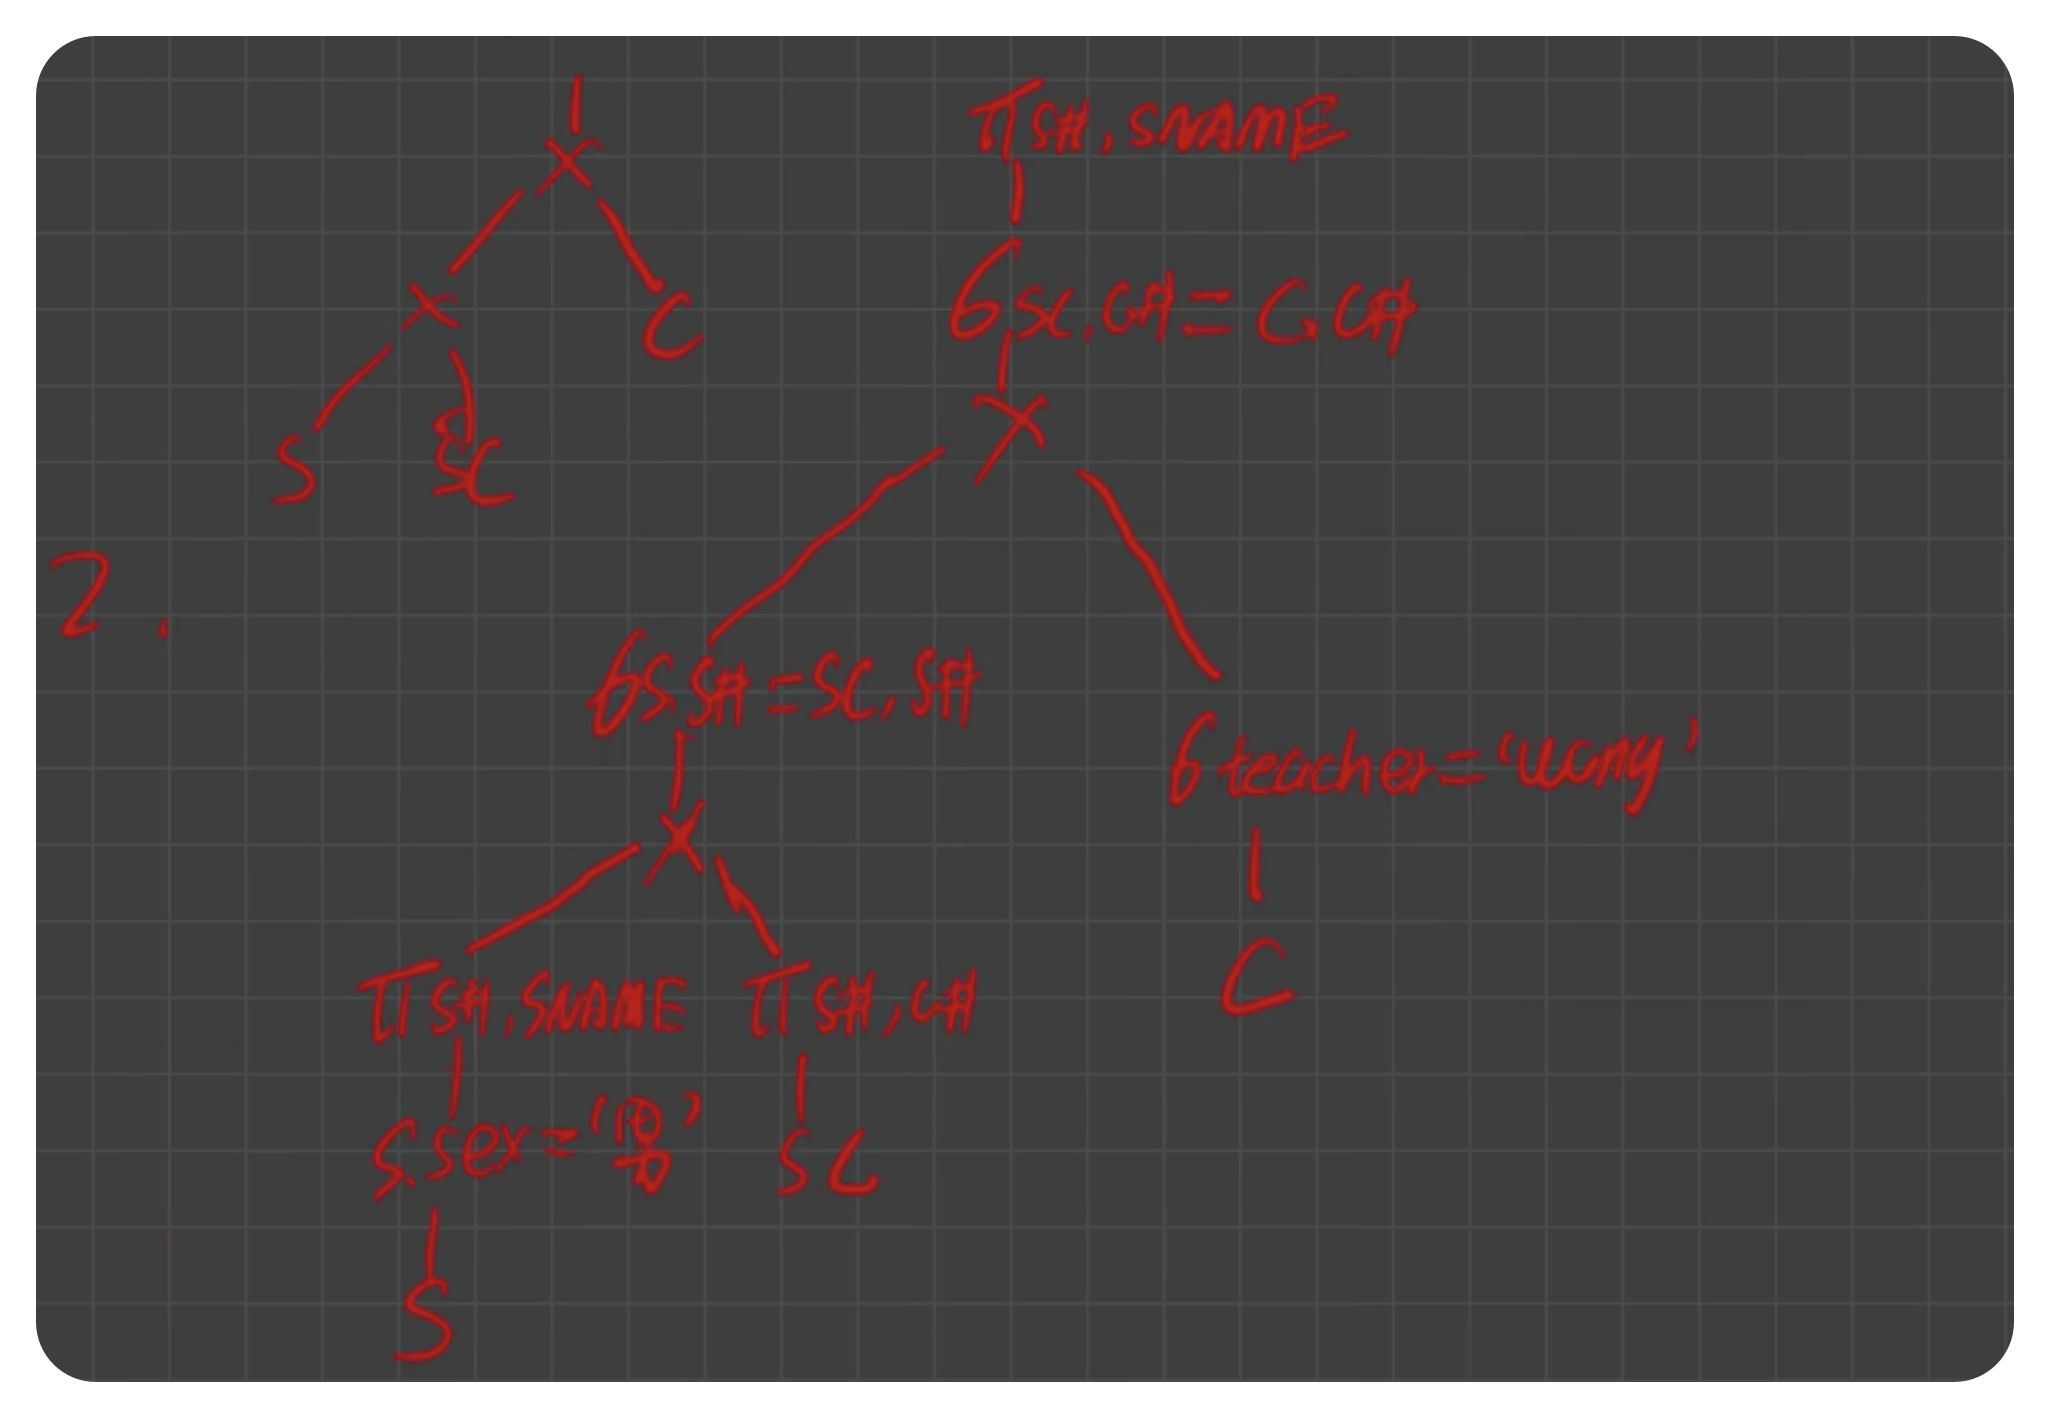 ×
× C
S SC
2.
π S#, SNAME
б SC.C# = C.C#
×
б S.S# = SC.S#
б teacher = 'wang'
×
C
π S#, SNAME π S#, C#
S.sex = '男' SC
S